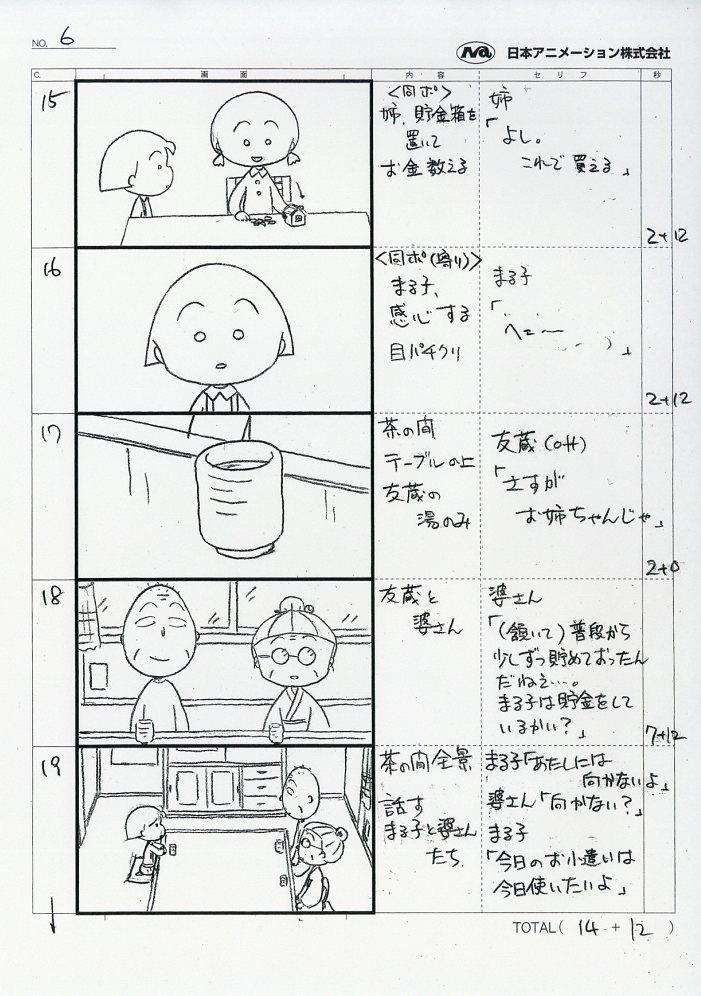 NO. 6
日本アニメーション株式会社
C. 画面 内容 セリフ 秒
15
<同ポ>
姉、貯金箱を
置いて
お金数える
姉
「よし。
これで買える」
2+12
16
<同ポ(寄り)>
まる子、
感心する
目パチクリ
まる子
「‥
へえー
」
2+12
17
茶の間
テーブルの上
友蔵の
湯のみ
友蔵(off)
「さすが
お姉ちゃんじゃ」
2+0
18
友蔵と
婆さん
婆さん
「(頷いて)普段から
少しずつ貯めておったん
だねえ…。
まる子は貯金をして
いるかい?」
7+12
19
茶の間全景
話す
まる子と婆さん
たち
まる子「あたしには
向かないよ」
婆さん「向かない?」
まる子
「今日のお小遣いは
今日使いたいよ」
TOTAL( 14 + 12 )